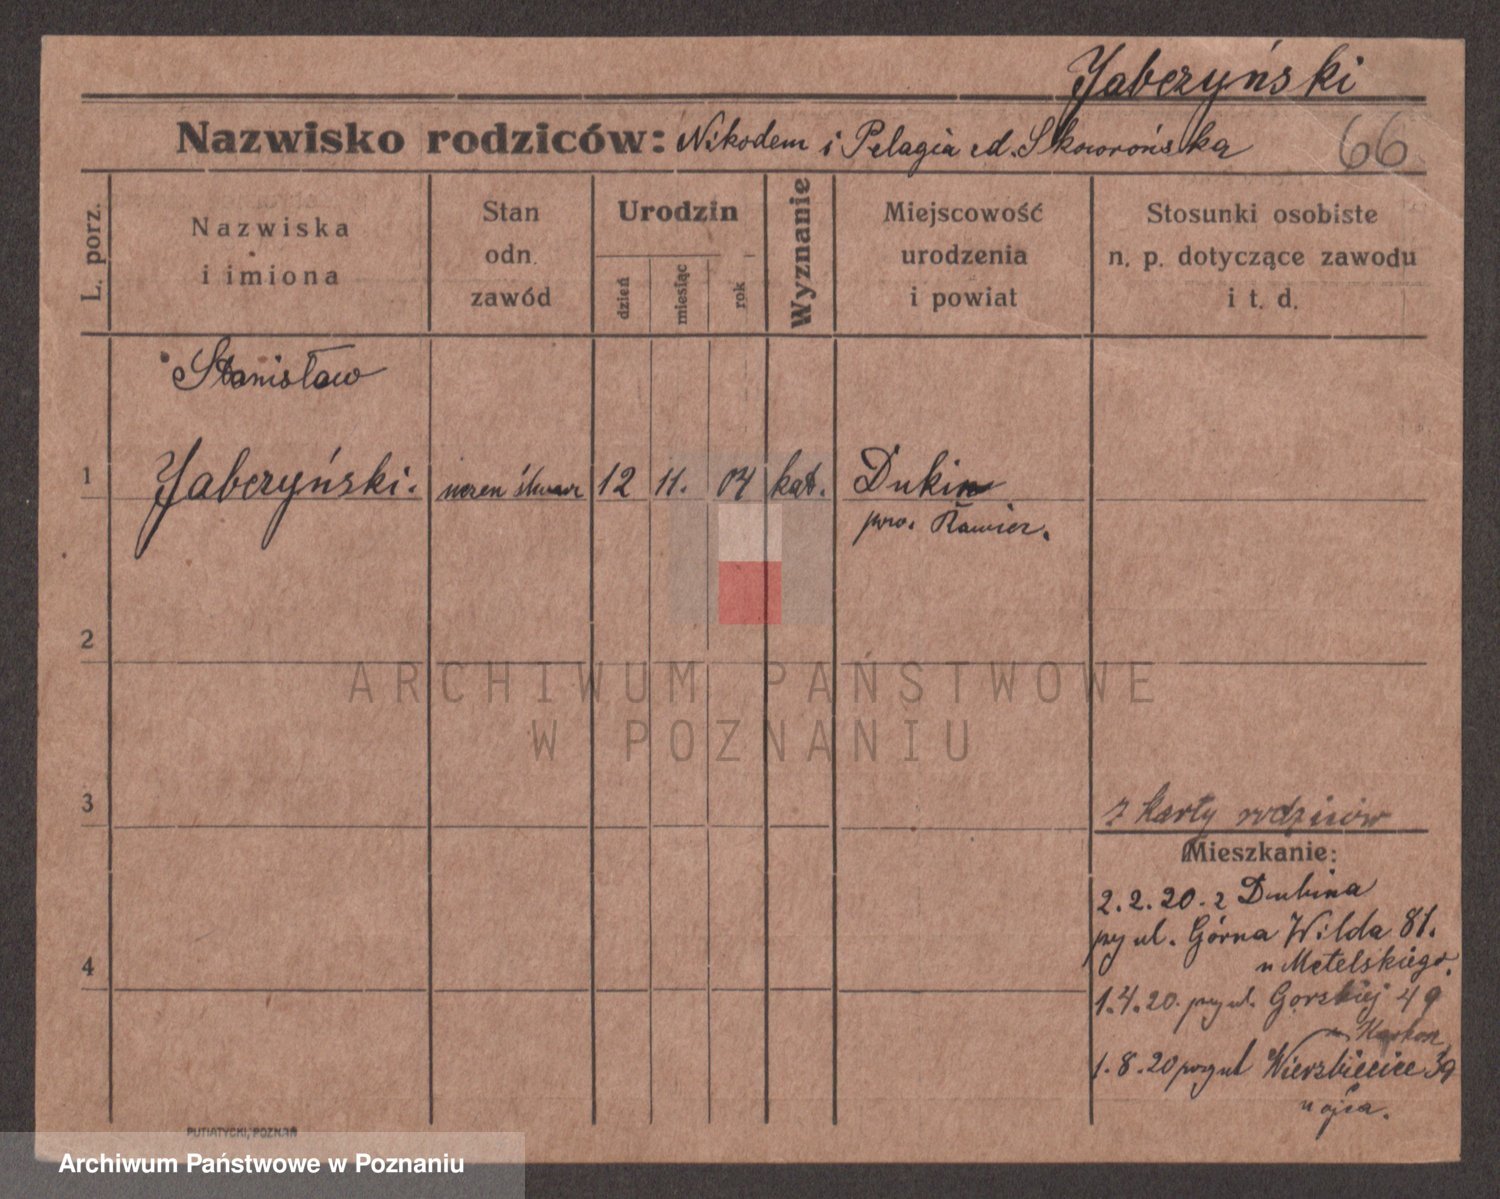 Jabczyński
Nazwisko rodziców: Nikodem i Pelagia Skoworońska
66
L. porz.
Nazwiska
i imiona
Stan
odn.
zawód
Urodzin
dzień
miesiąc
rok
Wyznanie
Miejscowość
urodzenia
i powiat
Stosunki osobiste
n. p. dotyczące zawodu
i t. d.
Stanisław
1 Jabczyński. uczeń 12 11. 04 kat. Dukin
pow. Rawicz.
2
ARCHIWUM PAŃSTWOWE
W POZNANIU
3
z karty rodziców
Mieszkanie:
2.2.20. z Dubina
przy ul. Górna Wilda 81.
u Metelskiego.
4
1.4.20. przy ul. Gorskiej 49
1.8.20 przy ul Wierzbięcice 39
u ojca.
PUTIATYCKI, POZNAŃ
Archiwum Państwowe w Poznaniu